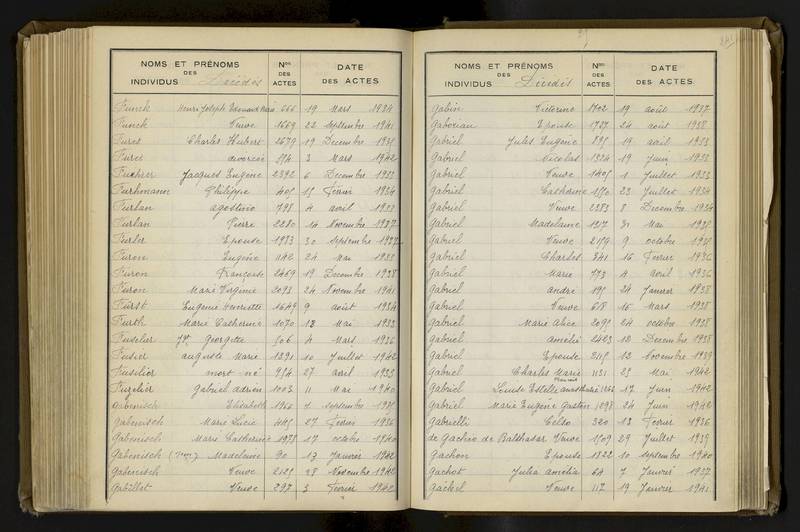 NOMS ET PRÉNOMS DES INDIVIDUS Décédés Nos DES ACTES DATE DES ACTES
Funck Henri Joseph 666 19 Mars 1934
Funck Veuve 1669 22 Septembre 1941
Furet Charles Hubert 2679 19 Décembre 1939
Furet divorcée 594 3 Mars 1942
Jacques Eugène 2392 6 Décembre 1933
Furhmann Philippe 405 15 Février 1934
Furlan agostino 798 4 avril
Furlan Pierre 2280 14 Novembre 1937
Furler Epouse 1983 30 Septembre 1937
Furon Eugène 1142 24 Mai 1938
Furon Françoise 2469 19 Décembre 1938
Furon Marie Virginie 2093 24 Novembre 1941
Fürst Eugénie Henriette 1649 9 août 1934
Furth Marie Catherine 1070 12 Mai 1933
Fuselier georgette 506 4 Mars 1936
Fusier auguste Marie 1391 10 Juillet 1942
Fusilier mort né 954 27 avril 1933
Fuzelier gabriel adrien 1003 11 Mai 1940
gabenisch Elisabeth 1966 7 Septembre
Gabenisch Marie Lucie 445 27 Février 1936
Gabenisch Marie Catherine 1978 17 octobre 1940
Gabenisch Madeleine 90 13 Janvier 1942
Gabenisch Veuve 2125 28 Novembre 1942
Gabillet Veuve 297 3 Février 1942
NOMS ET PRÉNOMS DES INDIVIDUS Décédés Nos DES ACTES DATE DES ACTES
Gabin Victorine 1702 19 août 1937
Gaborian Epouse 1737 24 août 1938
Gabriel Jules Eugène 895 19 avril 1933
Gabriel Nicolas 1324 19 Juin 1933
Gabriel Veuve 1405 1 Juillet 1933
Gabriel Catherine 1590 23 Juillet 1934
Gabriel Veuve 2283 8 Décembre 1934
Gabriel Madeleine 1217 31 Mai 1935
Gabriel Veuve 2159 9 octobre 1935
Gabriel Charles 341 16 Février 1936
Gabriel Marie 773 4 avril 1936
Gabriel andré 195 24 Janvier 1938
Gabriel Veuve 618 16 Mars 1938
Gabriel Marie Alice 2095 24 octobre 1938
Gabriel amélie 2403 12 Décembre 1938
Gabriel Epouse 2115 13 Novembre 1939
Gabriel Charles Marie 1131 23 Mai 1942
Gabriel Louise Estelle 1266 17 Juin 1942
Gabriel Marie Eugène Gaston 1298 24 Juin 1942
Gabrielli Celso 320 13 Février 1936
de Gachio de Balthasar Veuve 1509 29 Juillet 1939
Gachon Epouse 1822 10 Septembre 1940
Gachot Julia amélia 64 7 Janvier 1937
Gäckel Veuve 117 19 Janvier 1941